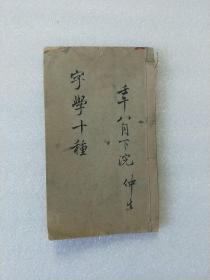 壬午八月下浣 仲生
字學十種